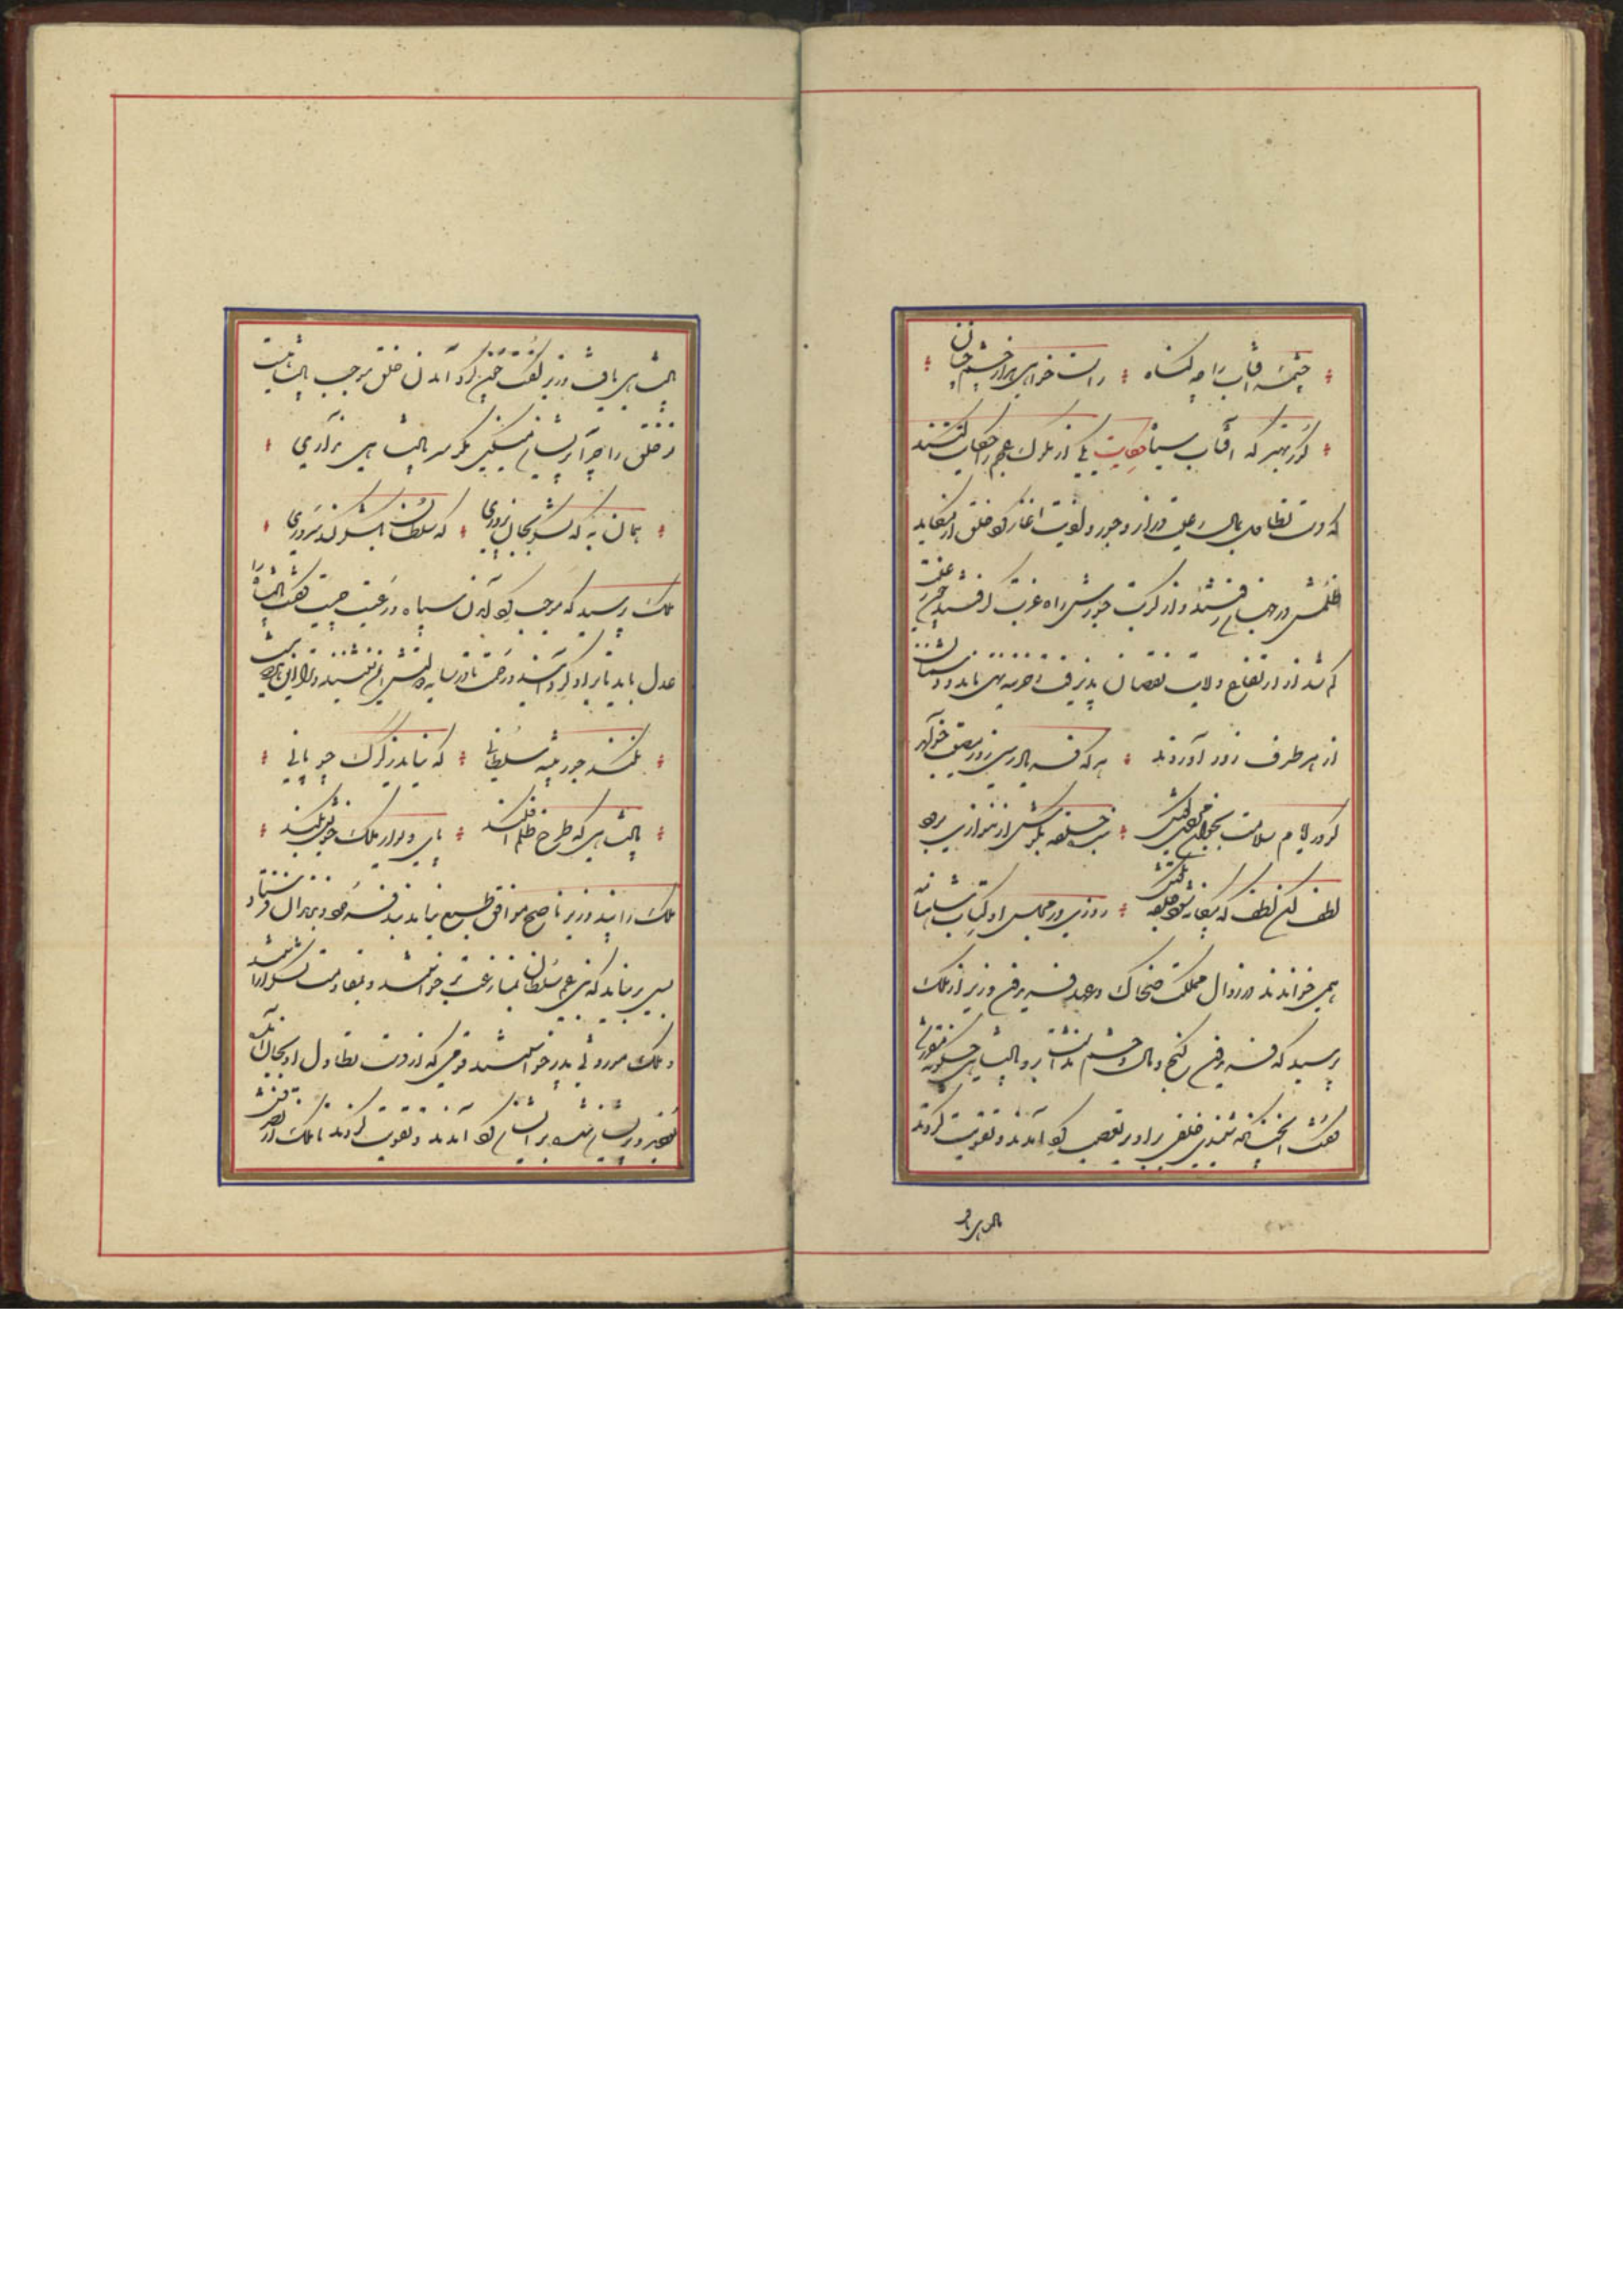 چشمه آفتاب را چه گناه راست خواهی هزار چشم چنان
کور بهتر که آفتاب سیاه حکایت یکی از ملوک عجم را حکایت کنند
که دست تطاول بمال رعیت دراز و جور و اذیت آغاز کرد خلق از مکاید
ظلمش در جهان رفتند و از کربت جورش راه غربت گرفتند چون رعیت
کم شد از ارتفاع ولایت نقصان پذیرفت و خزینه تهی ماند و دشمنان
از هر طرف زور آوردند هر که فریادرس روز مصیبت خواهد
گو در ایام سلامت بجوانمردی کوش بنده حلقه بگوش ار ننوازی برود
لطف کن لطف که بیگانه شود حلقه بگوش روزی در مجلس او کتاب شاهنامه
همی خواندند در زوال مملکت ضحاک و عهد فریدون وزیر از ملک
پرسید که فریدون گنج و مال و حشم نداشت برو پادشاهی چگونه مقرر شد
گفت آنچنانکه شنیدی خلقی برو بر تعصب گرد آمدند و تقویت کردند
پادشاهی یافت
پادشاهی یافت وزیر گفت چون گرد آمدن خلق موجب پادشاهیست
تو خلق را چرا پریشان میکنی مگر سر پادشاهی نداری
همان به که لشکر بجان پروری که سلطان بلشکر کند سروری
ملک پرسید که موجب گرد آمدن سپاه و رعیت چیست گفت پادشاه را
عدل باید تا برو گرد آیند و رحمت تا در سایه دولتش ایمن نشینند و ترا این هر دو نیست
نکند جور پیشه سلطانی که نیاید ز گرگ چوپانی
پادشاهی که طرح ظلم افکند پای دیوار ملک خویش بکند
ملک را پند وزیر ناصح موافق طبع نیامد بند فرمود و بزندان فرستاد
بسی برنیامد که بنی عم سلطان بمنازعت برخواستند و بمقاومت لشکر آراستند
و ملک موروثی پدر خواستند قومی که از دست تطاول او بجان آمده
بودند و پریشان شده بر ایشان گرد آمدند و تقویت کردند تا ملک از تصرفش